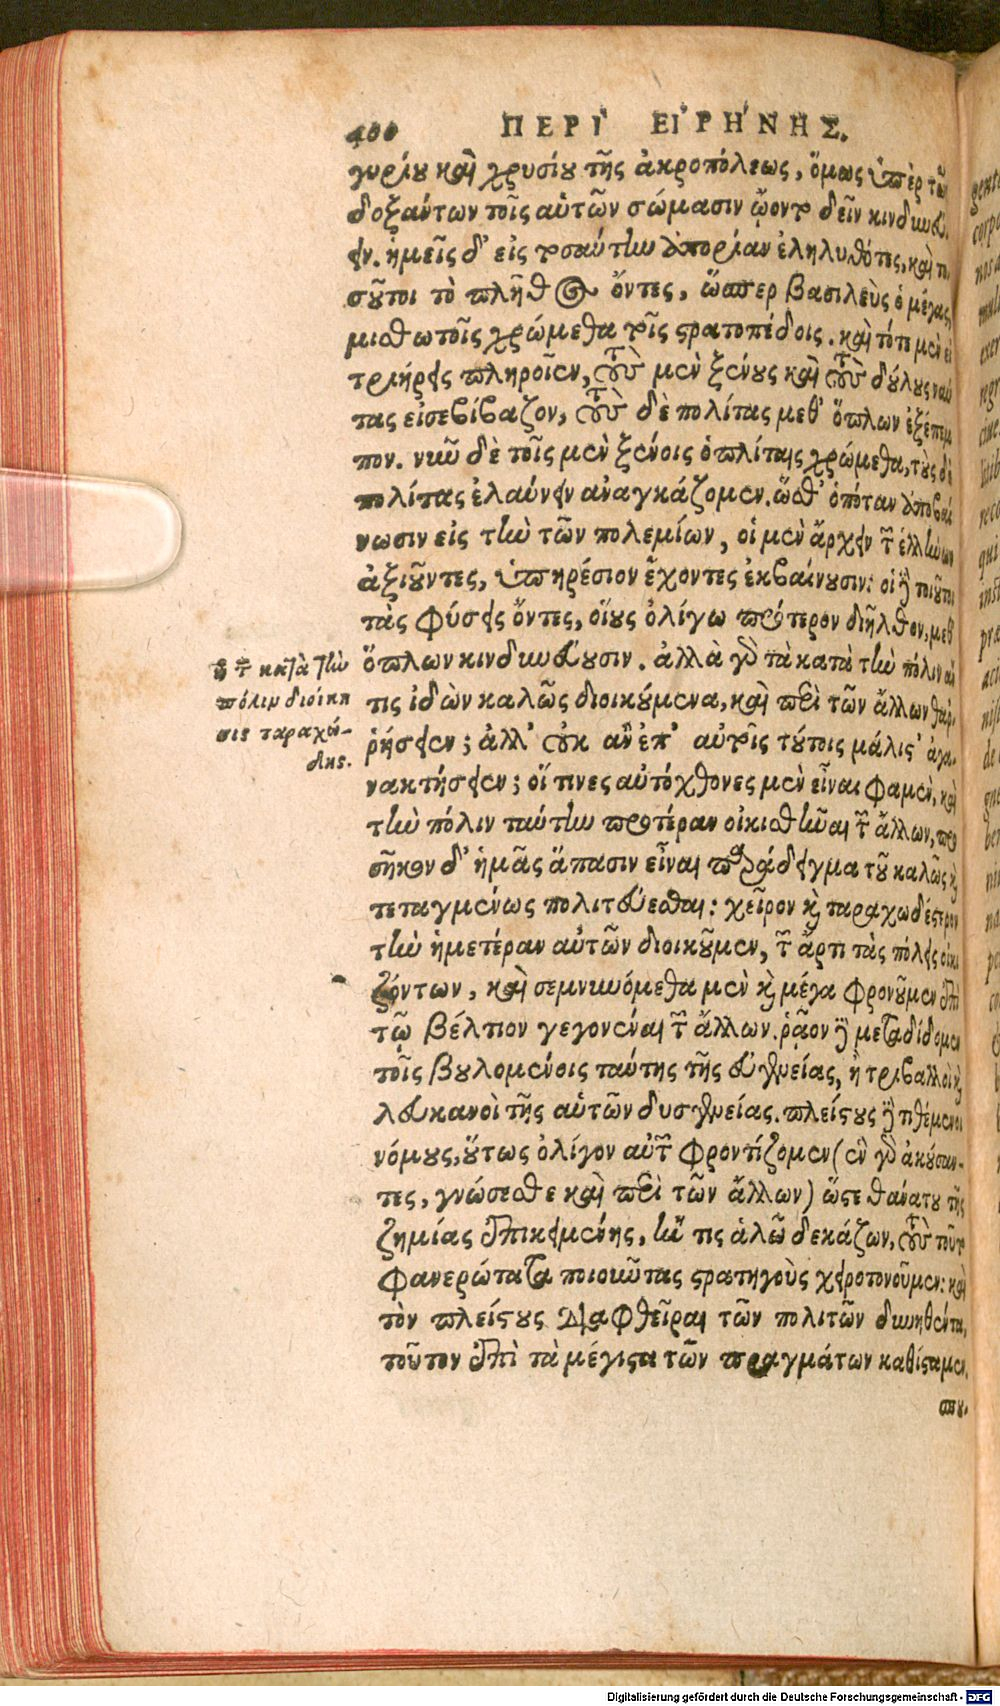 400 ΠΕΡῚ ΕἸΡΉΝΗΣ.
γυρίου καὶ χρυσίου τῆς ἀκροπόλεως, ὅμως ὑπὲρ τῶν
δοξάντων τοῖς αὑτῶν σώμασιν ᾤοντο δεῖν κινδυνεύ-
ειν. ἡμεῖς δ' εἰς τοσαύτην ἀπορίαν ἐληλυθότες, καὶ το-
σοῦτοι τὸ πλῆθος ὄντες, ὥσπερ βασιλεὺς ὁ μέγας,
μισθωτοῖς χρώμεθα τοῖς στρατοπέδοις. καὶ τότε μὲν εἰ
τριήρεις πληροῖεν, τοὺς μὲν ξένους καὶ τοὺς δούλους ναύ
τας εἰσεβίβαζον, τοὺς δὲ πολίτας μεθ' ὅπλων ἐξέπεμ
πον. νῦν δὲ τοῖς μὲν ξένοις ὁπλίταις χρώμεθα, τοὺς δὲ
πολίτας ἐλαύνειν ἀναγκάζομεν. ὥσθ' ὁπόταν ἀποβαί
νωσιν εἰς τὴν τῶν πολεμίων, οἱ μὲν ἄρχειν τῶν ἑλλήνων
ἀξιοῦντες, ὑπηρέσιον ἔχοντες ἐκβαίνουσιν: οἱ δὲ τοιοῦτοι
τὰς φύσεις ὄντες, οἵους ὀλίγω πρότερον διῆλθον, μεθ'
ὅπλων κινδυνεύουσιν. ἀλλὰ γὰρ τὰ κατὰ τὴν πόλιν ἄν
τις ἰδὼν καλῶς διοικούμενα, καὶ περὶ τῶν ἄλλων θαρ-
ρήσειεν; ἀλλ' οὐκ ἂν ἐπ' αὐτοῖς τούτοις μάλιστ' ἀγα-
νακτήσειεν; οἵ τινες αὐτόχθονες μὲν εἶναι φαμὲν, καὶ
τὴν πόλιν ταύτην προτέραν οἰκισθῆναι τῶν ἄλλων, προ
σῆκον δ' ἡμᾶς ἅπασιν εἶναι παράδειγμα τοῦ καλῶς καὶ
τεταγμένως πολιτεύεσθαι: χεῖρον καὶ ταραχωδέστερον
τὴν ἡμετέραν αὐτῶν διοικοῦμεν, τῶν ἄρτι τὰς πόλεις οἰκι
ζόντων, καὶ σεμνυνόμεθα μὲν καὶ μέγα φρονοῦμεν ἐπὶ
τῷ βέλτιον γεγονέναι τῶν ἄλλων. ῥᾷον δὲ μεταδίδομεν
τοῖς βουλομένοις ταύτης τῆς εὐγενείας, ἢ τριβαλλοὶ καὶ
λευκανοὶ τῆς αὑτῶν δυσγενείας. πλείστους δὲ τιθέμενοι
νόμους, οὕτως ὀλίγον αὐτῶν φροντίζομεν (ἓν γὰρ ἀκούσαν-
τες, γνώσεσθε καὶ περὶ τῶν ἄλλων) ὥστε θανάτου τῆς
ζημίας ἐπικειμένης, ἤν τις ἁλῷ δεκάζων, τοὺς τοῦτο
φανερώτατα ποιοῦντας στρατηγοὺς χειροτονοῦμεν: καὶ
τὸν πλείστους διαφθεῖραι τῶν πολιτῶν δυνηθέντα,
τοῦτον ἐπὶ τὰ μέγιστα τῶν πραγμάτων καθίσταμεν.
σπου.
τῶν κατὰ τὴν
πόλιν διοίκη
σις ταραχώ-
δης.
Digitalisierung gefördert durch die Deutsche Forschungsgemeinschaft - DFG